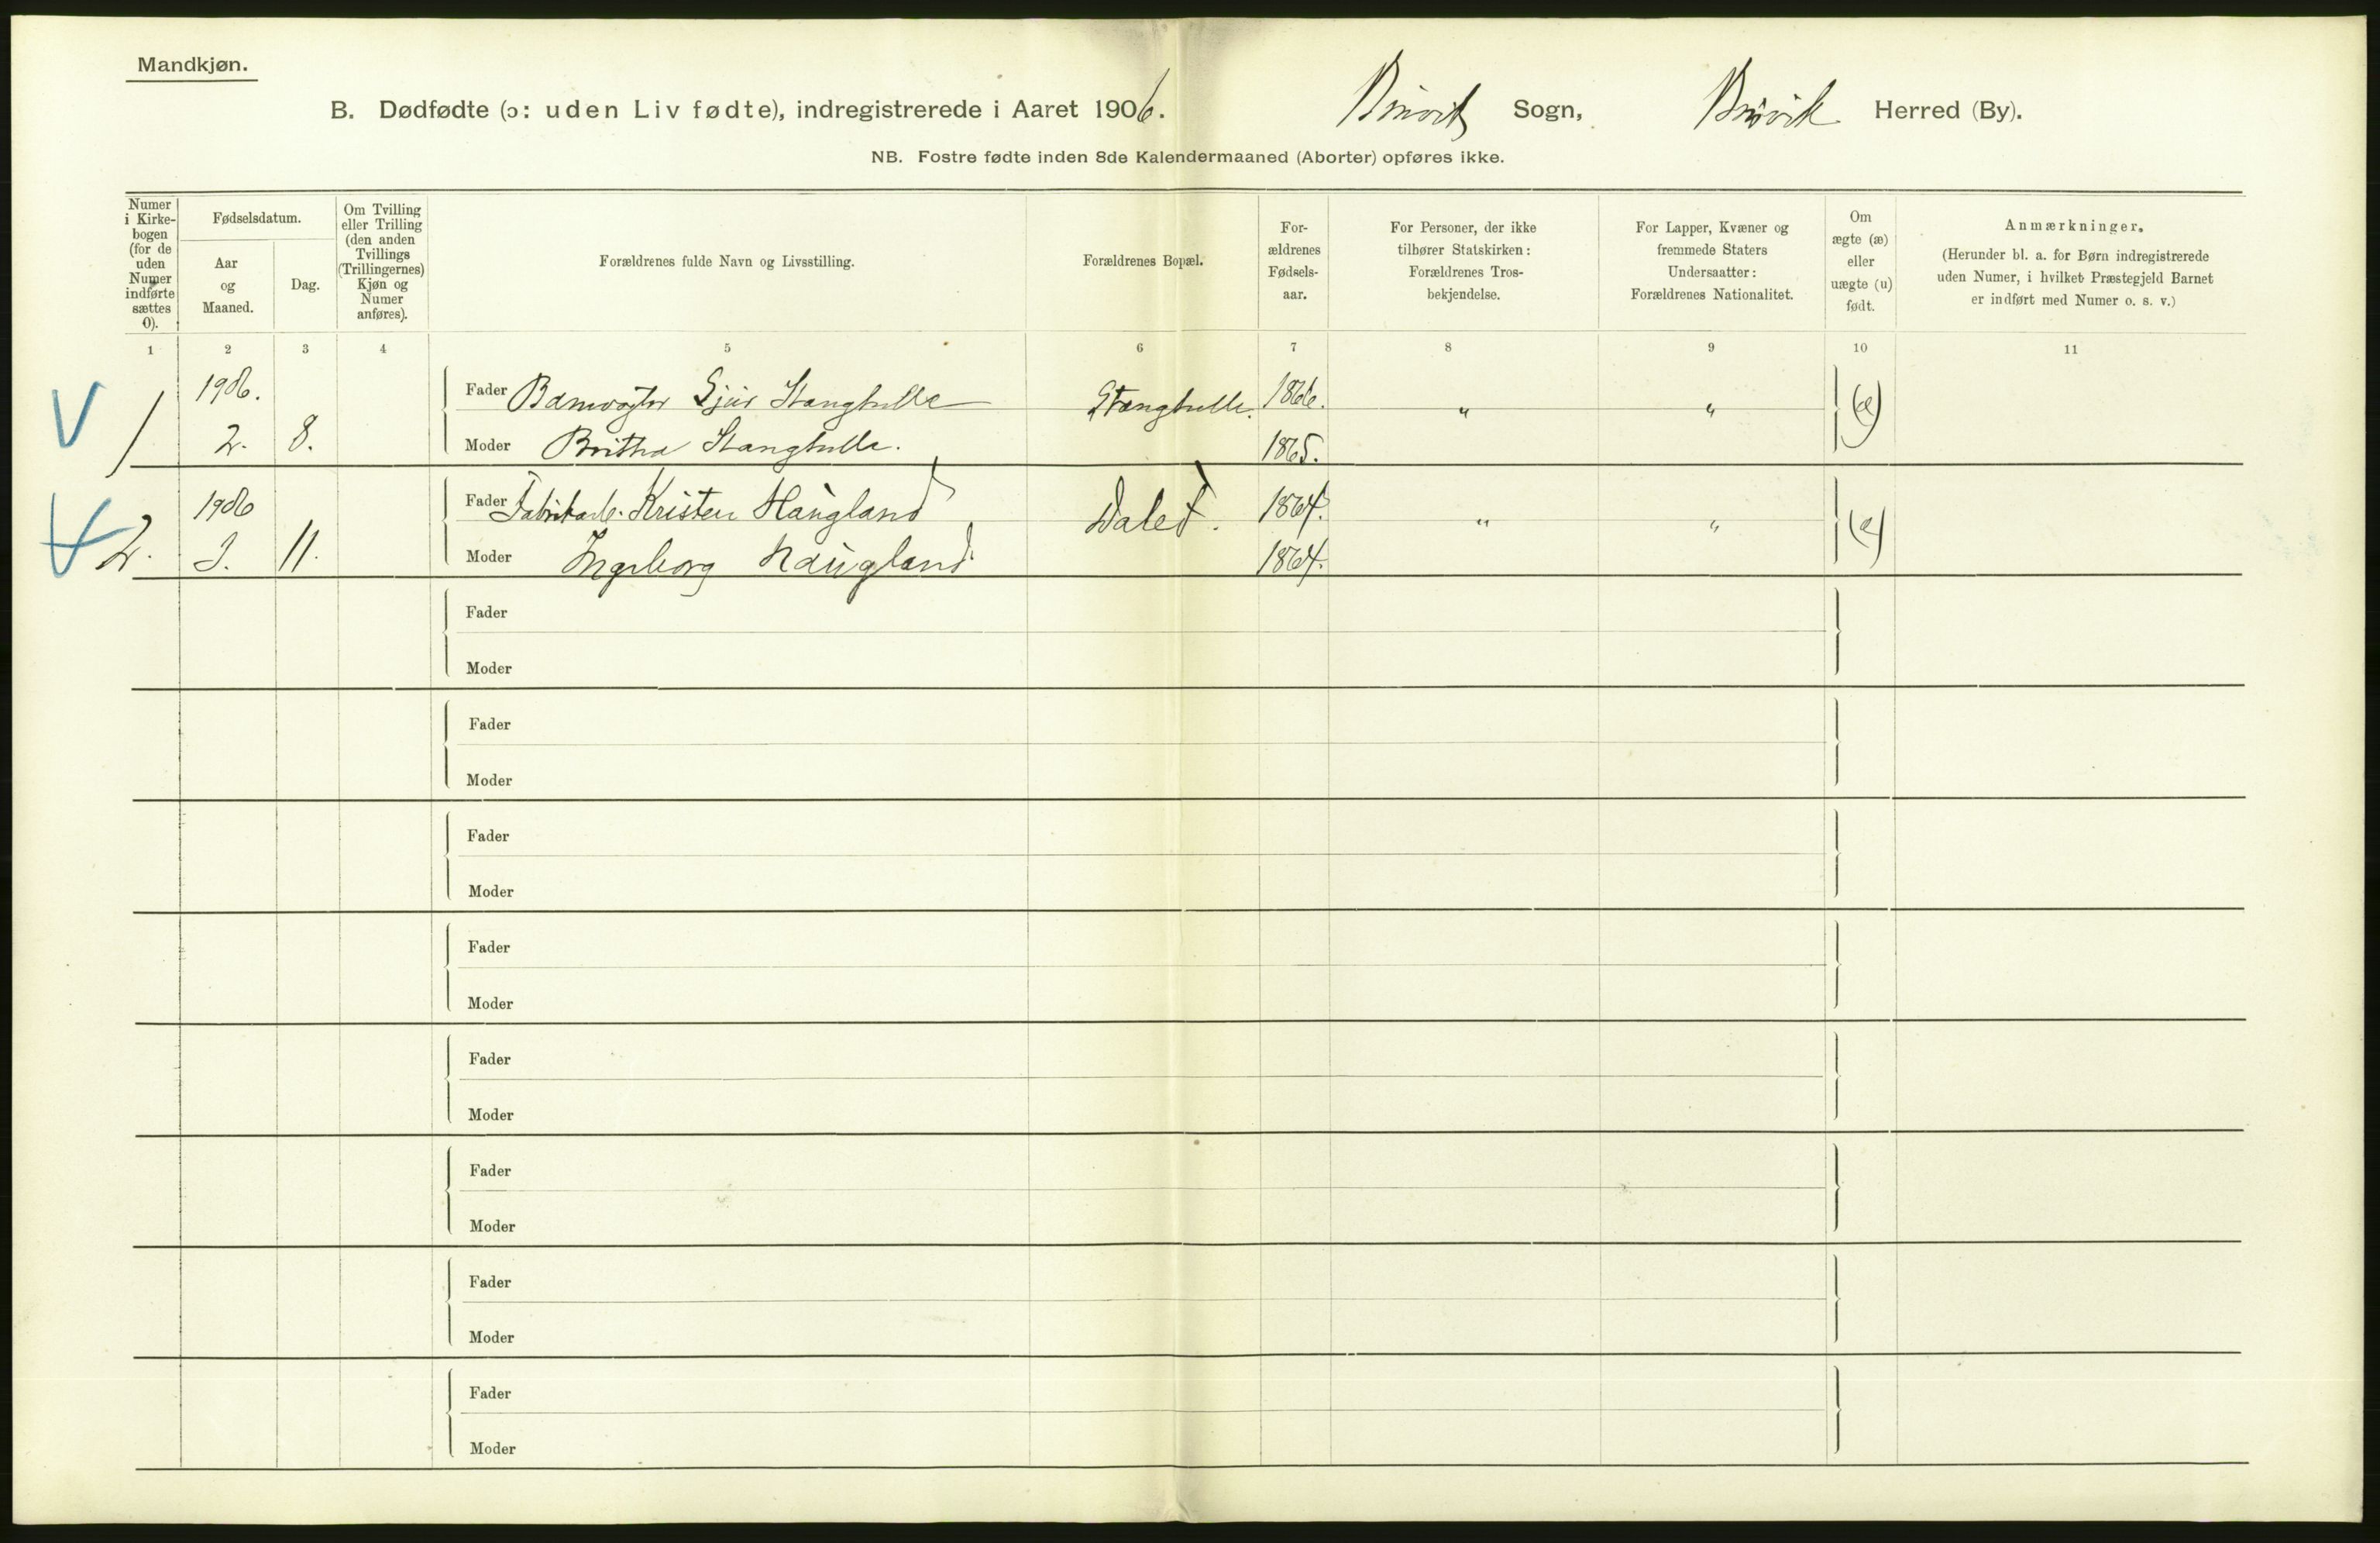 Mandkjøn.
B. Dødfødte (ɔ: uden Liv fødte), indregistrerede i Aaret 1906. Bruvik Sogn, Bruvik Herred (By).
NB. Fostre fødte inden 8de Kalendermaaned (Aborter) opføres ikke.
Numer
i Kirke-
bogen
(for de
uden
Numer
indførte
sættes
0).
Fødselsdatum.
Aar
og
Maaned.
Dag.
Om Tvilling
eller Trilling
(den anden
Tvillings
(Trillingernes)
Kjøn og
Numer
anføres).
Forældrenes fulde Navn og Livsstilling.
Forældrenes Bopæl.
For-
ældrenes
Fødsels-
aar.
For Personer, der ikke
tilhører Statskirken:
Forældrenes Tros-
bekjendelse.
For Lapper, Kvæner og
fremmede Staters
Undersaatter:
Forældrenes Nationalitet.
Om
ægte (æ)
eller
uægte (u)
født.
Anmærkninger.
(Herunder bl. a. for Børn indregistrerede
uden Numer, i hvilket Præstegjeld Barnet
er indført med Numer o. s. v.)
1 2 3 4 5 6 7 8 9 10 11
1906. Fader Banevogter Sjur Stanghelle Stanghelle. 1866. " " (æ)
1 2. 8. Moder Britha Stanghelle. 1865.
1906 Fader Fabrikarb. Kristen Haugland Dalet. 1864. " " (æ)
2. 3. 11. Moder Ingeborg Haugland. 1864.
Fader
Moder
Fader
Moder
Fader
Moder
Fader
Moder
Fader
Moder
Fader
Moder
Fader
Moder
Fader
Moder